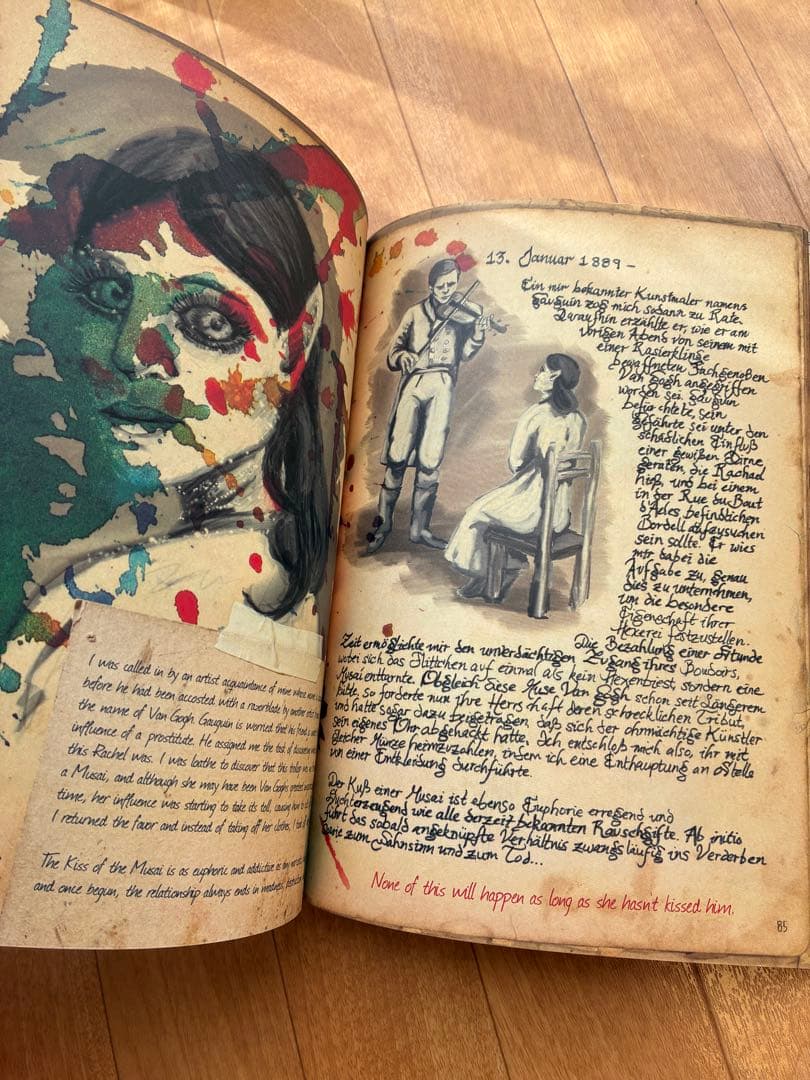 I was called in by an artist acquaintance of mine whose
before he had been accosted with a razorblade by another artist
the name of Van Gogh. Gauguin is worried that his friend
influence of a prostitute. He assigned me the task of
this Rachel was. I was loathe to discover that this
a Musai, and although she may have been Van Gogh's greatest
time, her influence was starting to take its toll, causing him to
I returned the favor and instead of taking off her clothes, I
The Kiss of the Musai is as euphoric and addictive as any
and once begun, the relationship always ends in madness,
13. Januar 1889 -
Ein mir bekannter Kunstmaler namens
Gauguin zog mich sodann zu Rate.
Daraufhin erzählte er, wie er am
vorigen Abend von seinem mit
einer Rasierklinge
bewaffneten Fachgenoßen
Van Gogh angegriffen
worden sei. Gauguin
befürchtete, sein
Gefährte sei unter den
schädlichen Einfluß
einer gewißen Dirne
geraten, die Rachad
hieß, und bei einem
in der Rue du Bout
d'Arles befindlichen
Bordell aufzusuchen
sein sollte. Er wies
mir dabei die
Aufgabe zu, genau
dies zu unternehmen,
um die besondere
Eigenschaft ihrer
Hexerei festzustellen.
Die Bezahlung einer Stunde
Zeit ermöglichte mir den unverdächtigen Zugang ihres Boudoirs,
wobei sich das Flittchen auf einmal als kein Hexenbiest, sondern eine
Musai entlarnte. Obgleich diese Muse Van Gogh schon seit Längerem
küßte, so forderte nun ihre Herrschaft deren schrecklichen Tribut,
und hatte sogar dazu beigetragen, daß sich der ohnmächtige Künstler
sein eigenes Ohr abgehackt hatte. Ich entschloß mich also, ihr mit
gleicher Münze heimzuzahlen, indem ich eine Enthauptung an Stelle
von einer Entkleidung durchführte.
Der Kuß einer Musai ist ebenso Euphorie erregend und
suchterzeugend wie alle derzeit bekannten Rauschgifte. Ab initio
führt das sobald angeknüpfte Verhältnis zwangsläufig ins Verderben
sowie zum Wahnsinn und zum Tod...
None of this will happen as long as she hasn't kissed him.
85